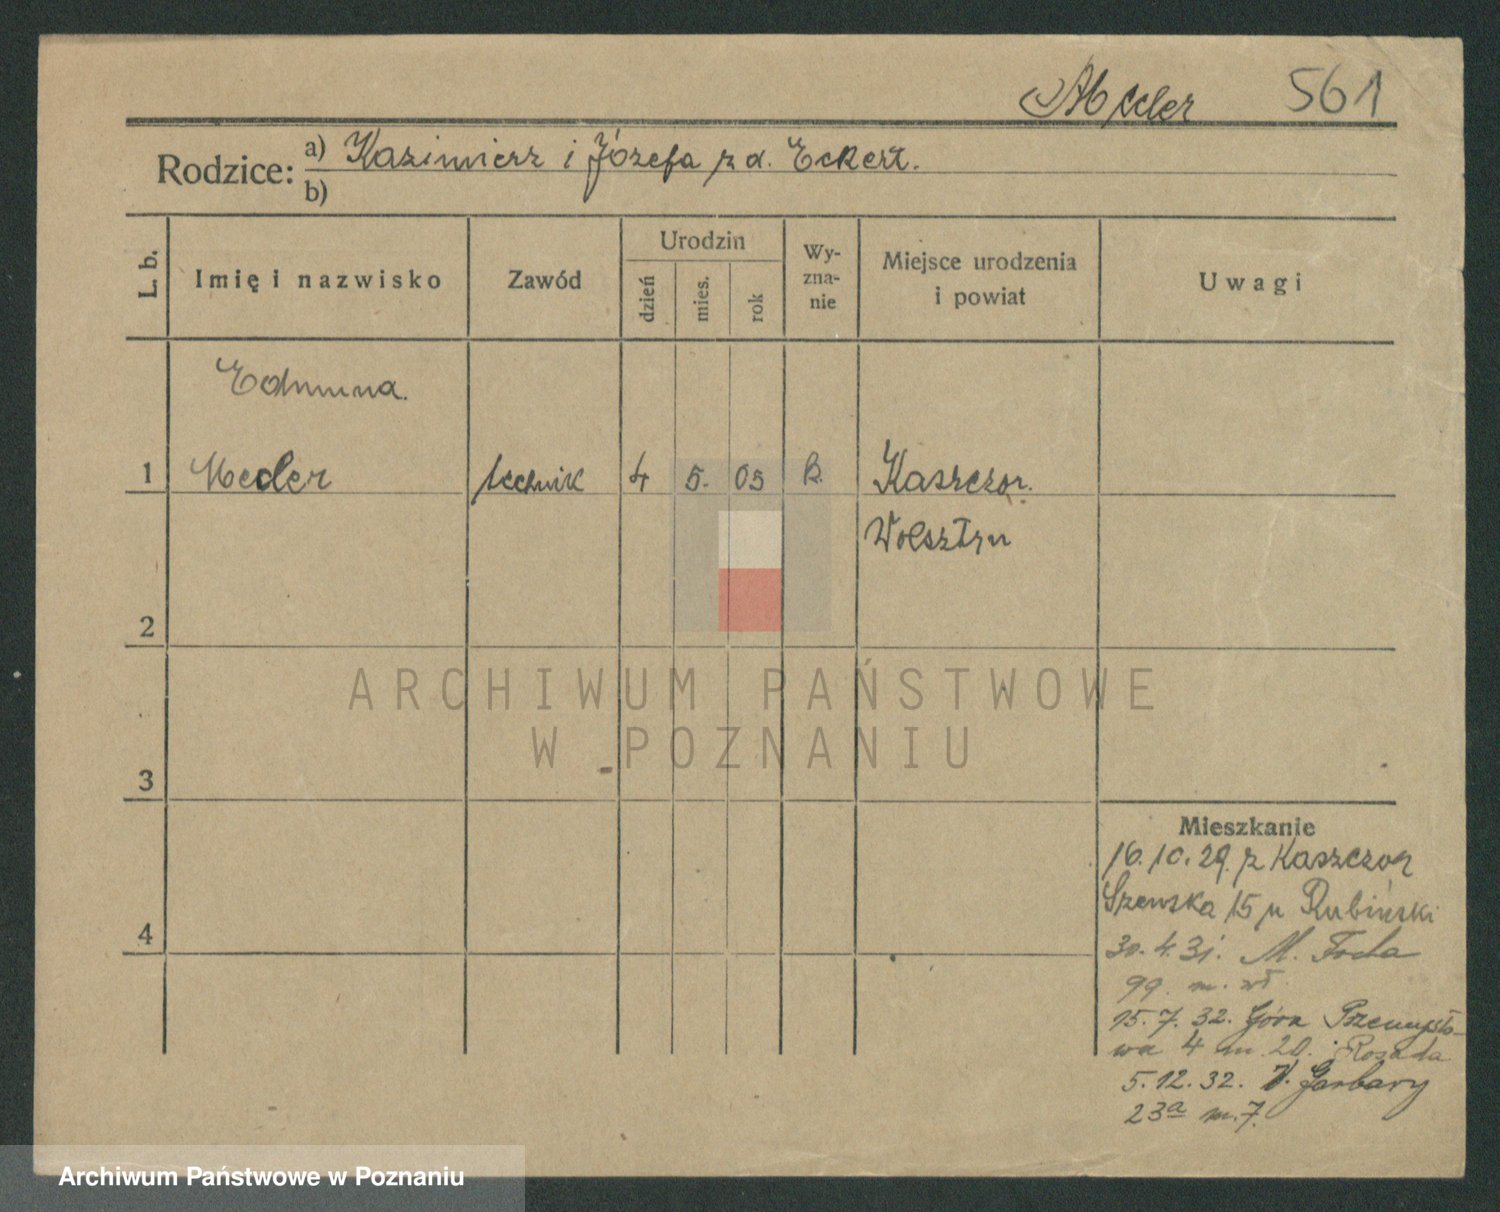 Meder 561
Rodzice: a) Kazimierz i Józefa z d. Eckert.
b)
L. b. Imię i nazwisko Zawód Urodzin dzień mies. rok Wy-zna-nie Miejsce urodzenia i powiat Uwagi
Edmund
1 Meder technik 4 5. 05 Kaszczor.
Wolsztyn
2
3
4
Mieszkanie
16.10.29. z Kaszczor
15 u Rubiński
30.4.31. M. Focha
99. m.
15.7.32. Góra Przemysło-
wa 4 m. 20.
5.12.32. Garbary
23a m.7.
ARCHIWUM PAŃSTWOWE
W POZNANIU
Archiwum Państwowe w Poznaniu